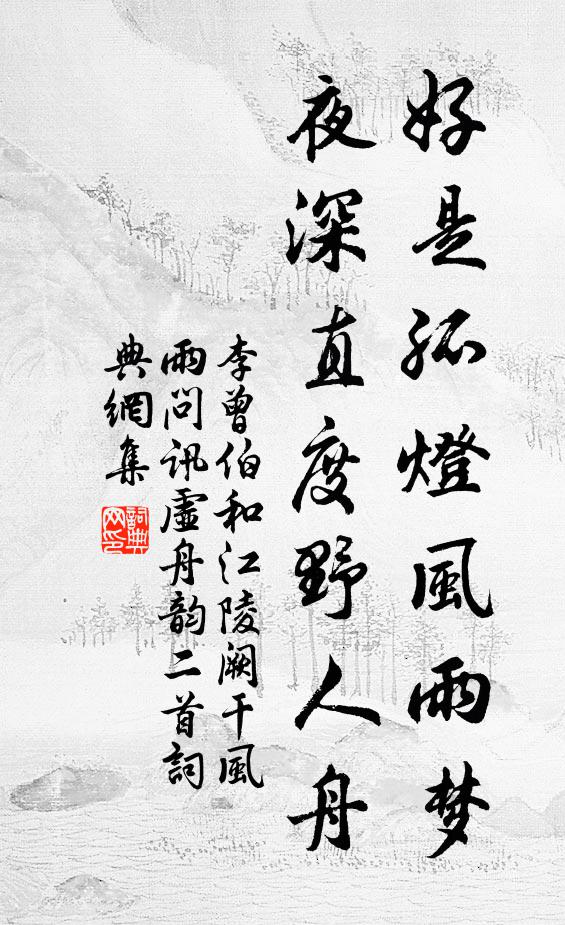 好是孤燈風雨梦
夜深直度野人舟
李曾伯和江陵阙干風
雨問訊虛舟韵二首詞
典網集
詞典网印